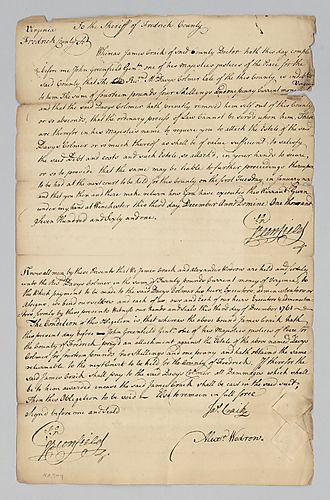 Virginia To the Sheriff of Fredrick County
Fredrick County Sct.
Whereas James Craik of said County Doctor hath this day complained
before me John Greenfield Gent. one of his Majesties justices of the Peace for the
said County that the Revd. Mr. Davys Colmer late of the this county, is indebted
to him The sum of fourteen pounds four Shillings and one penny Current money
and that the said Davys Colmer hath privately removed himself out of this County
or so absconds, that the ordinary process of Law Cannot be served upon him These
are therefore in his Majesties name, to require you to attach the Estate of the said
Davys Colmer or so much thereof as shall be of value sufficient to satisfy
the said Debt and costs and such Estate, so attach'd, in your hands to secure,
or so to provide that the same may be liable to further proceedings thereupon
to be had at the next court to be held for this County on the first Tuesday in January next
and that you then and there make return how you have executed this Warrant Given
under my hand at Winchester this third day December Anno Domine One thousand
seven Hundred and sixty and one.
Greenfield
Know all men by these Presents that We James Craik and Alexander Wodrow are held and firmly
unto the Revd. Davys Colmer in the sum of Twenty pounds Current money of Virginia, To
the Which payment to be made to the said Davys Colmer his heirs Executors Administrators or
Assigns, We bind ourselves and each of us our and Each of our heirs Executors Administrators
firmly by these presents Witness our hands and seals this third day of December 1761
The Condition of this Obligation is, that whereas the above bound James Craik, hath
this present day before me John Greenfield Gent. one of his Majesties justices of Peace for
the County of Fredrick pray'd an attachment against the Estate of the above named Davys
Colmer for fourteen pounds four Shillings and one penny and hath obtained the same
returnable to the next Court to be held for the County of Fredrick. If therefore the
said James Craik shall pay to the said Davys Colmer all Dammages which shall
be to him awarded incase the said James Craik shall be cast in the said suit,
Then this Obligation to be void Else to remain in full force
Sign'd before me and seal'd
Jas. Craik
Greenfield
Alexr. Wodrow.